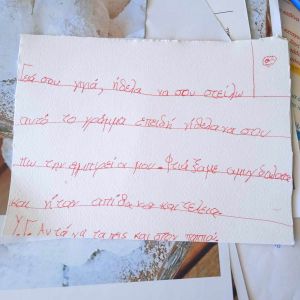 Γειά σου γιαγιά, ήθελα να σου στείλω
αυτό το γράμμα επειδή ήθελα να σου
πω την εμπειρεία μου. Φτιάξαμε αμυγδαλωτα
και ήταν απίθανα και τελεια.
Υ.Γ. Αυτά να τα πεις και στον παππού